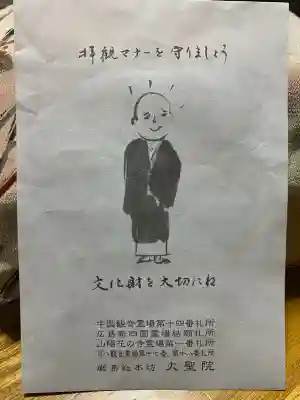 拝観マナーを守りましょう
文化財を大切にね
中国観音霊場第十四番札所
広島新四国霊場結願札所
山陽花の寺霊場第一番札所
観音霊場第十七番、第十八番札所
厳島総本坊 大聖院